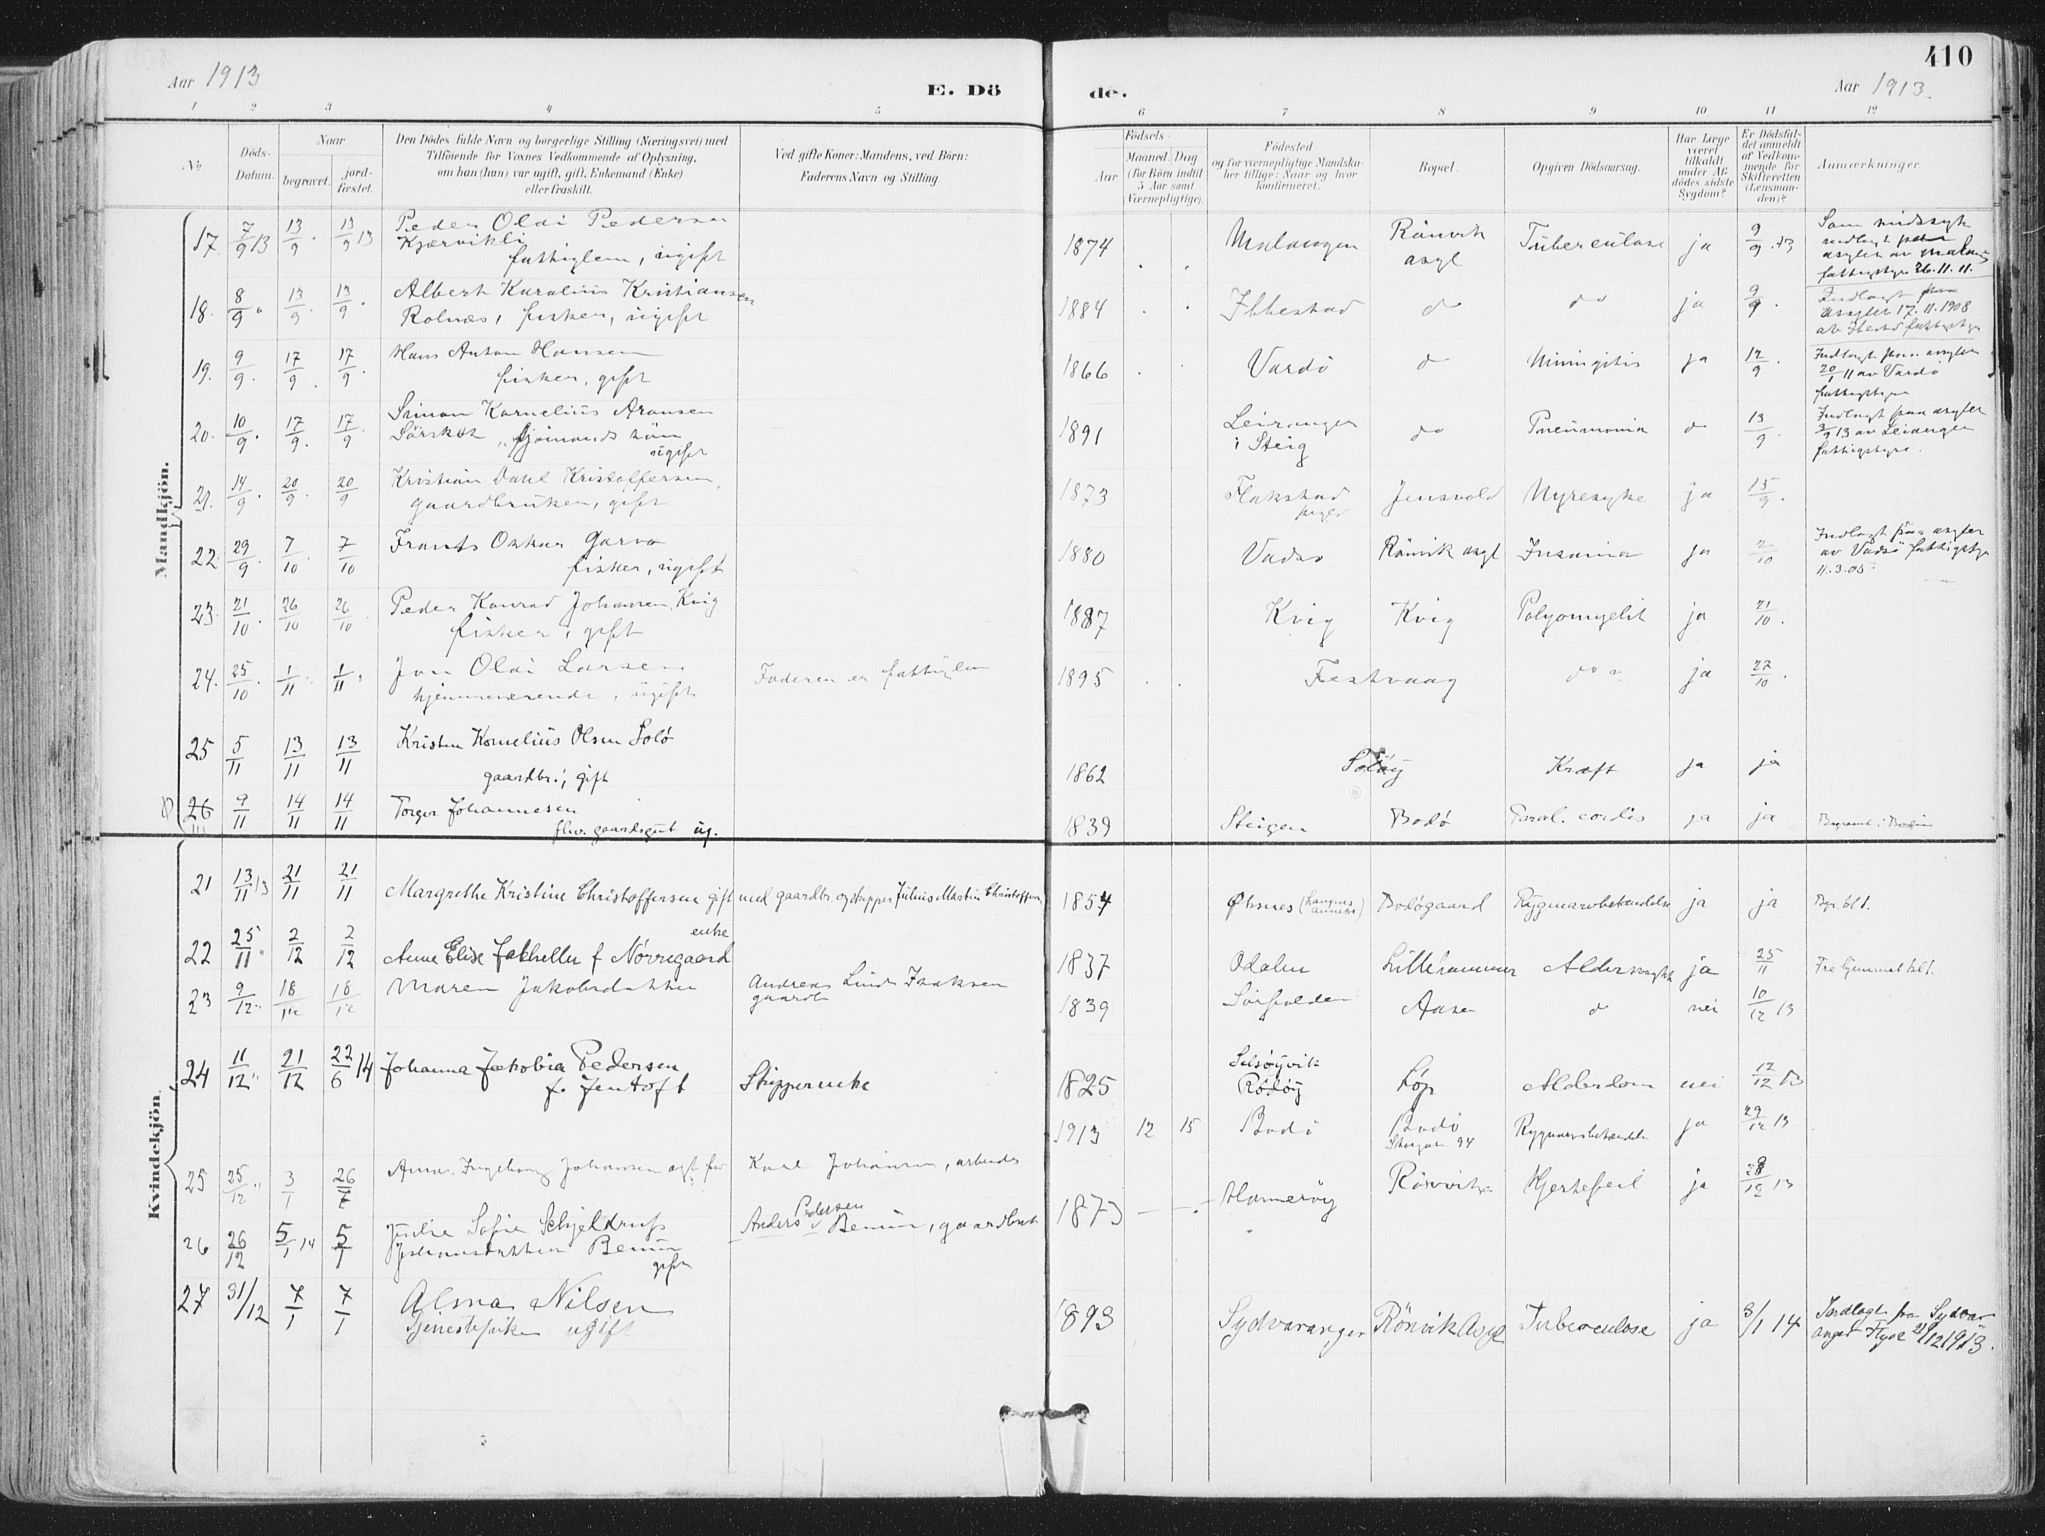 Aar 1913
E. Dö
de.
410
Aar 1913.
1 2 3 4 5 6 7 8 9 10 11 12
No
Döds-Datum.
Naar
begravet.
jord-fæstet.
Den Dödes fulde Navn og borgerlige Stilling (Næringsvei) med
Tilföiende for Voxnes Vedkommende af Oplysning,
om han (hun) var ugift, gift, Enkemand (Enke)
eller fraskilt.
Ved gifte Koner: Mandens, ved Börn:
Faderens Navn og Stilling.
Födsels-
Aar
Maaned Dag
(for Börn indtil
5 Aar samt
Værnepligtige).
Födested
og for værnepligtige Mandska-
ber tillige: Naar og hvor
konfirmeret.
Bopæl.
Opgiven Dödsaarsag.
Har Læge
været
tilkaldt
under Af-
dödes sidste
Sygdom?
Er Dödsfal-
det anmeldt
af Vedkom-
mende for
Skifteretten
(Lensman-
den)?
Anmærkninger.
Mandkjön.
17. 7/9 13 13/9 13/9 13 Peder Olai Pedersen
Kjærvikli
fattiglem, ugift
1874 Malangen Rönvik asyl Tuberculose ja 9/9 13
18. 8/9 " 13/9 13/9 Albert Karolius Kristiansen
Rolnæs, fisker, ugift
1884 Ibbestad do do ja 9/9
Indlagt paa
asylet 17.11.1908
19. 9/9 17/9 17/9 Hans Anton Hansen
fisker, gift
1866 Vardö do Miningitis ja 12/9
Indlagt paa asylet
20/1 11 av Vardö
fattigstyre
20. 10/9 17/9 17/9 Simon Kornelius Aronsen
ugift
1891 Leiranger
i Steig
do Pneumonia do 13/9
Indlagt paa asylet
3/9 13 av Leiranger
fattigstyre.
21. 14/9 20/9 20/9 Kristian Dahl Kristoffersen,
gaardbruker, gift
1873 Flakstad Jensvold Nyresyke ja 15/9
22. 29/9 7/10 7/10 Frants Oskar Garvo
fisker, ugift
1880 Vadsø Rönvik asyl Insania ja 2/10
Indlagt paa asylet
av Vadsö fattigstyre
11.3.05.
23. 21/10 26/10 26/10 Peder Konrad Johansen, Kvig
fisker, gift
1887 Kvig Kvig Polyomyelit ja 21/10
24. 25/10 1/11 1/11 Jon Olai Larsen
hjemmeværende, ugift
Faderen er fattiglem
1895 Festvaag do ja 27/10
25 5/11 13/11 13/11 Kristen Kornelius Olsen Solö
gaardbr., gift
1862 Soløy Kræft ja ja
26 9/11 14/11 14/11 Torger Johannesen
fhv. gaardsgut ug.
1839 Steigen Bodø Paral. cordis ja ja
Kvindekjön.
21 13/11 13 21/11 21/11 Margrethe Kristine Christoffersen gift med gaardbr. og skipper Julius Martin Christoffersen
1854 Øksnes Bodøgaard Rygmarvsbetendelse ja ja
22 25/11 " 2/12 2/12 Anne Elise Jakhelln f Nørregaard
enke
1837 Odalen Lillehammer Aldersvaghet ja 25/11 Fra hjemmet
23 9/12 " 18/12 18/12 Maren Jakobsdatter
Andreas Lind Isaksen
gaardb
1839 Sörfolden Aasen do nei 10/12 13
24 11/12 " 21/12 22/6 14 Johanna Jakobia Pedersen
f. Jentoft
Skipperenke
1825 Selsøyvik
Rødøy
Løp Alderdom nei 12/12 13
1913 12 15 Bodö Bodö
Storgaten 94
Rygmarvsbetændelse ja 29/12 13
25 25/12 " 3/1 26/7 Anna Ingeborg Johansen
Karl Johansen, arbeider
26 26/12 5/1 14 5/1 Julie Sofie Schjeldrup
Johansdatter Benum
gift
Anders Pedersen Benum, gaardbruker
1873 Hamerøy Rönvik Hjertefeil ja 28/12 13
27 31/12 7/1 7/1 Alma Nilsen
Tjenestepike ugift
1893 Sydvaranger Rönvik Asyl Tuberculose ja 3/1 14
Indlagt fra Sydvar-
anger